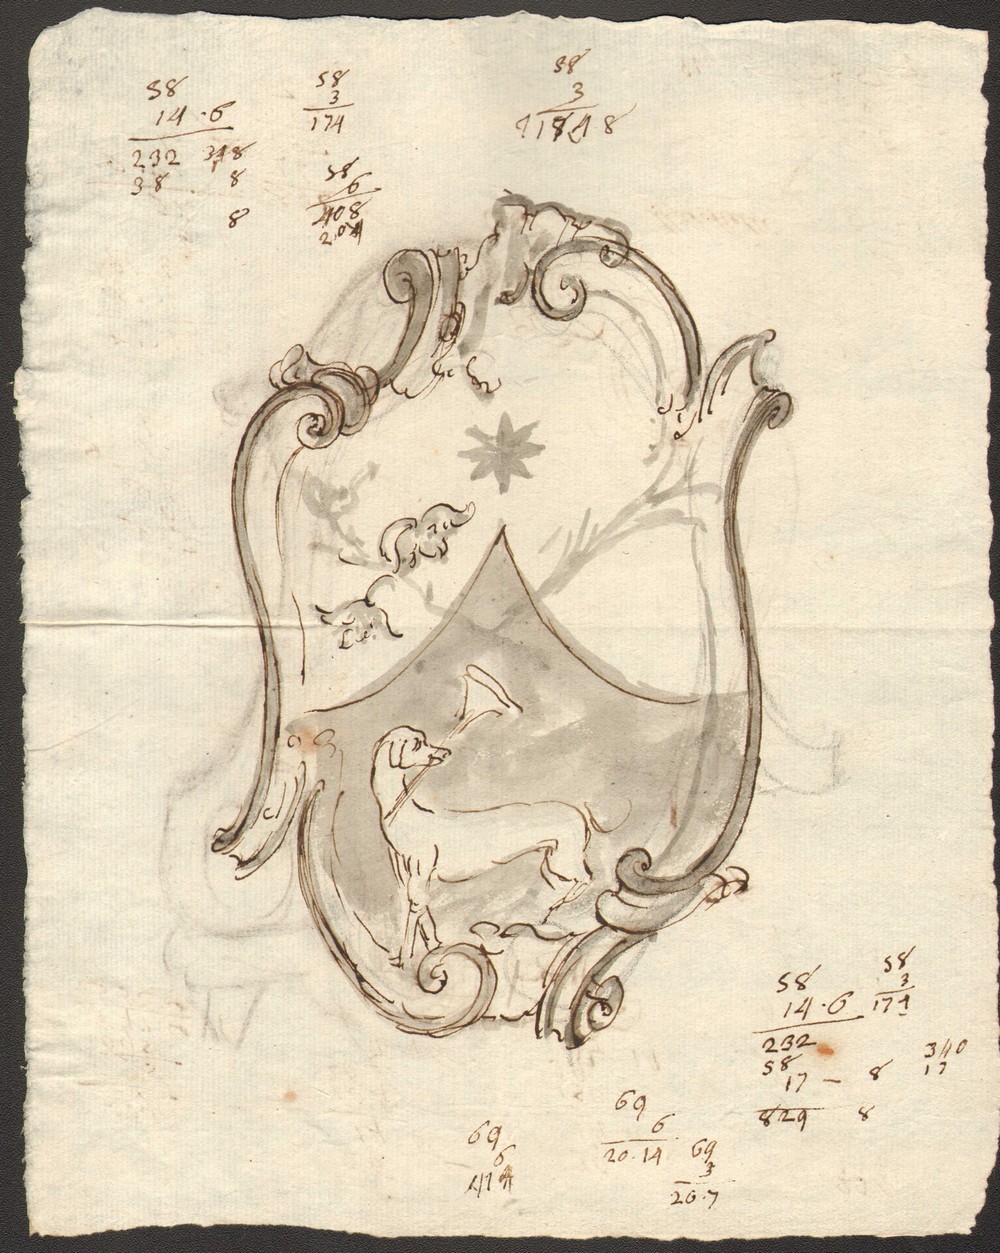 58
14 · 6
232 348
38 8
8
58
3
174
58
6
408
204
58
3
58
14 · 6
232
58
17 – 8
829 8
58
3
174
340
17
69
6
414
69
6
20 · 14
69
3
20 · 7